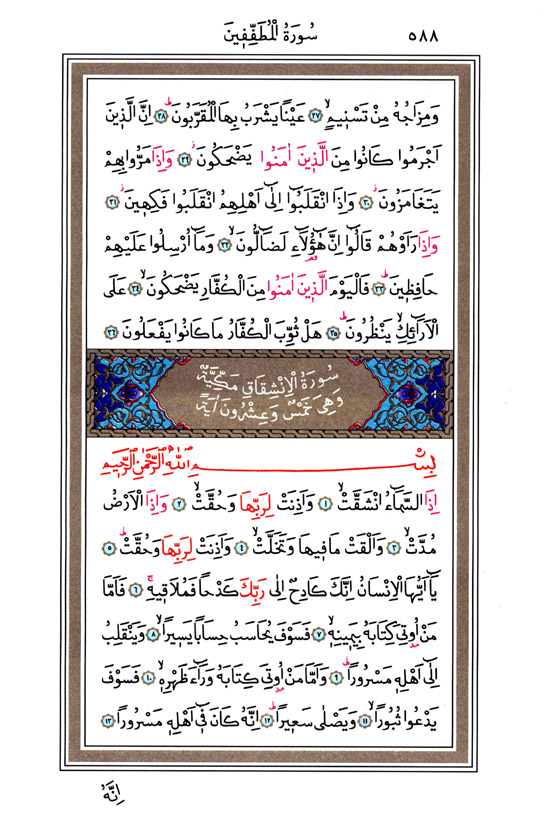 ٥٨٨ سُورَةُ الْمُطَفِّفِينَ
وَمِزَاجُهُ مِنْ تَسْنِيمٍۙ ﴿٢٧﴾ عَيْناً يَشْرَبُ بِهَا الْمُقَرَّبُونَۜ ﴿٢٨﴾ اِنَّ الَّذِينَ
اَجْرَمُوا كَانُوا مِنَ الَّذِينَ اٰمَنُوا يَضْحَكُونَۘ ﴿٢٩﴾ وَاِذَا مَرُّوا بِهِمْ
يَتَغَامَزُونَۘ ﴿٣٠﴾ وَاِذَا انْقَلَبُٓوا اِلٰٓى اَهْلِهِمُ انْقَلَبُوا فَكِهِينَۘ ﴿٣١﴾
وَاِذَا رَاَوْهُمْ قَالُٓوا اِنَّ هٰٓؤُ۬لَٓاءِ لَضَٓالُّونَۙ ﴿٣٢﴾ وَمَٓا اُرْسِلُوا عَلَيْهِمْ
حَافِظِينَۜ ﴿٣٣﴾ فَالْيَوْمَ الَّذِينَ اٰمَنُوا مِنَ الْكُفَّارِ يَضْحَكُونَۙ ﴿٣٤﴾ عَلَى
الْاَرَٓائِكِۙ يَنْظُرُونَۜ ﴿٣٥﴾ هَلْ ثُوِّبَ الْكُفَّارُ مَا كَانُوا يَفْعَلُونَ ﴿٣٦﴾
سُورَةُ الْاِنْشِقَاقِ مَكِّيَّةٌ
وَهِيَ خَمْسٌ وَعِشْرُونَ اٰيَةً
بِسْمِ اللّٰهِ الرَّحْمٰنِ الرَّحِيمِ
اِذَا السَّمَٓاءُ انْشَقَّتْۙ ﴿١﴾ وَاَذِنَتْ لِرَبِّهَا وَحُقَّتْۙ ﴿٢﴾ وَاِذَا الْاَرْضُ
مُدَّتْۙ ﴿٣﴾ وَاَلْقَتْ مَا فِيهَا وَتَخَلَّتْۙ ﴿٤﴾ وَاَذِنَتْ لِرَبِّهَا وَحُقَّتْۜ ﴿٥﴾
يَٓا اَيُّهَا الْاِنْسَانُ اِنَّكَ كَادِحٌ اِلٰى رَبِّكَ كَدْحاً فَمُلَاقِيهِۚ ﴿٦﴾ فَاَمَّا
مَنْ اُو۫تِيَ كِتَابَهُ بِيَمِينِهِۙ ﴿٧﴾ فَسَوْفَ يُحَاسَبُ حِسَاباً يَسِيراًۙ ﴿٨﴾ وَيَنْقَلِبُ
اِلٰٓى اَهْلِهِ مَسْرُوراًۜ ﴿٩﴾ وَاَمَّا مَنْ اُو۫تِيَ كِتَابَهُ وَرَٓاءَ ظَهْرِهِۙ ﴿١٠﴾ فَسَوْفَ
يَدْعُوا ثُبُوراًۙ ﴿١١﴾ وَيَصْلٰى سَعِيراًۜ ﴿١٢﴾ اِنَّهُ كَانَ فِٓي اَهْلِهِ مَسْرُوراًۜ ﴿١٣﴾
اِنَّهُ